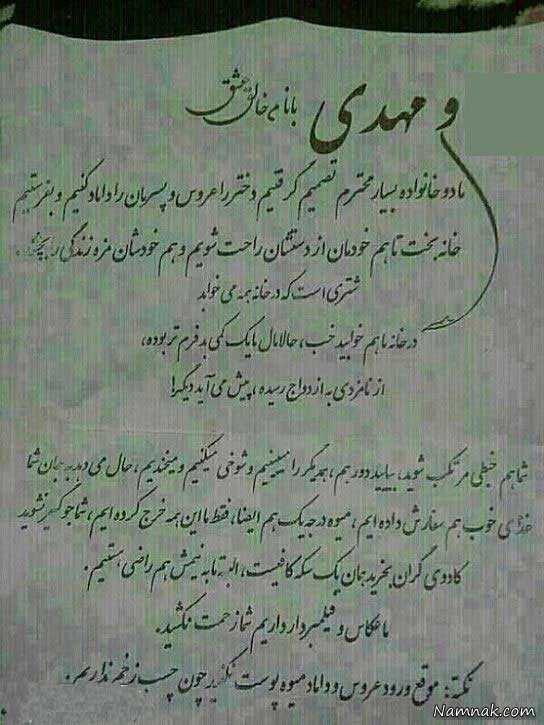 و مهدی
با نام خالق عشق
ما دو خانواده بسیار محترم تصمیم گرفتیم دختر را عروس و پسرمان را داماد کنیم و بفرستیم
خانه بخت تا هم خودمان از دستشان راحت شویم و هم خودشان مزه زندگی را بچشند.
شتری است که در خانه همه می خوابد
در خانه ما هم خوابید خب، حالا مال ما یک کمی بد فرم تر بوده،
از نامزدی به ازدواج رسیده، پیش می آید دیگر!
شما هم خبطی مرتکب شوید، بیایید دور هم، همدیگر را ببینیم و شوخی میکنیم و میخندیم، حال می دهد به جان شما
غذای خوب هم سفارش داده ایم، میوه درجه یک هم ایضا، فقط ما این همه خرج کرده ایم، شما جوگیر نشوید
کادوی گران بخرید همان یک سکه کافیست، البته تا به نیمش هم راضی هستیم.
ما عکاس و فیلمبردار داریم شما زحمت نکشید.
نکته: موقع ورود عروس و داماد میوه پوست نگیرید چون چسب زخم نداریم.
Namnak.com